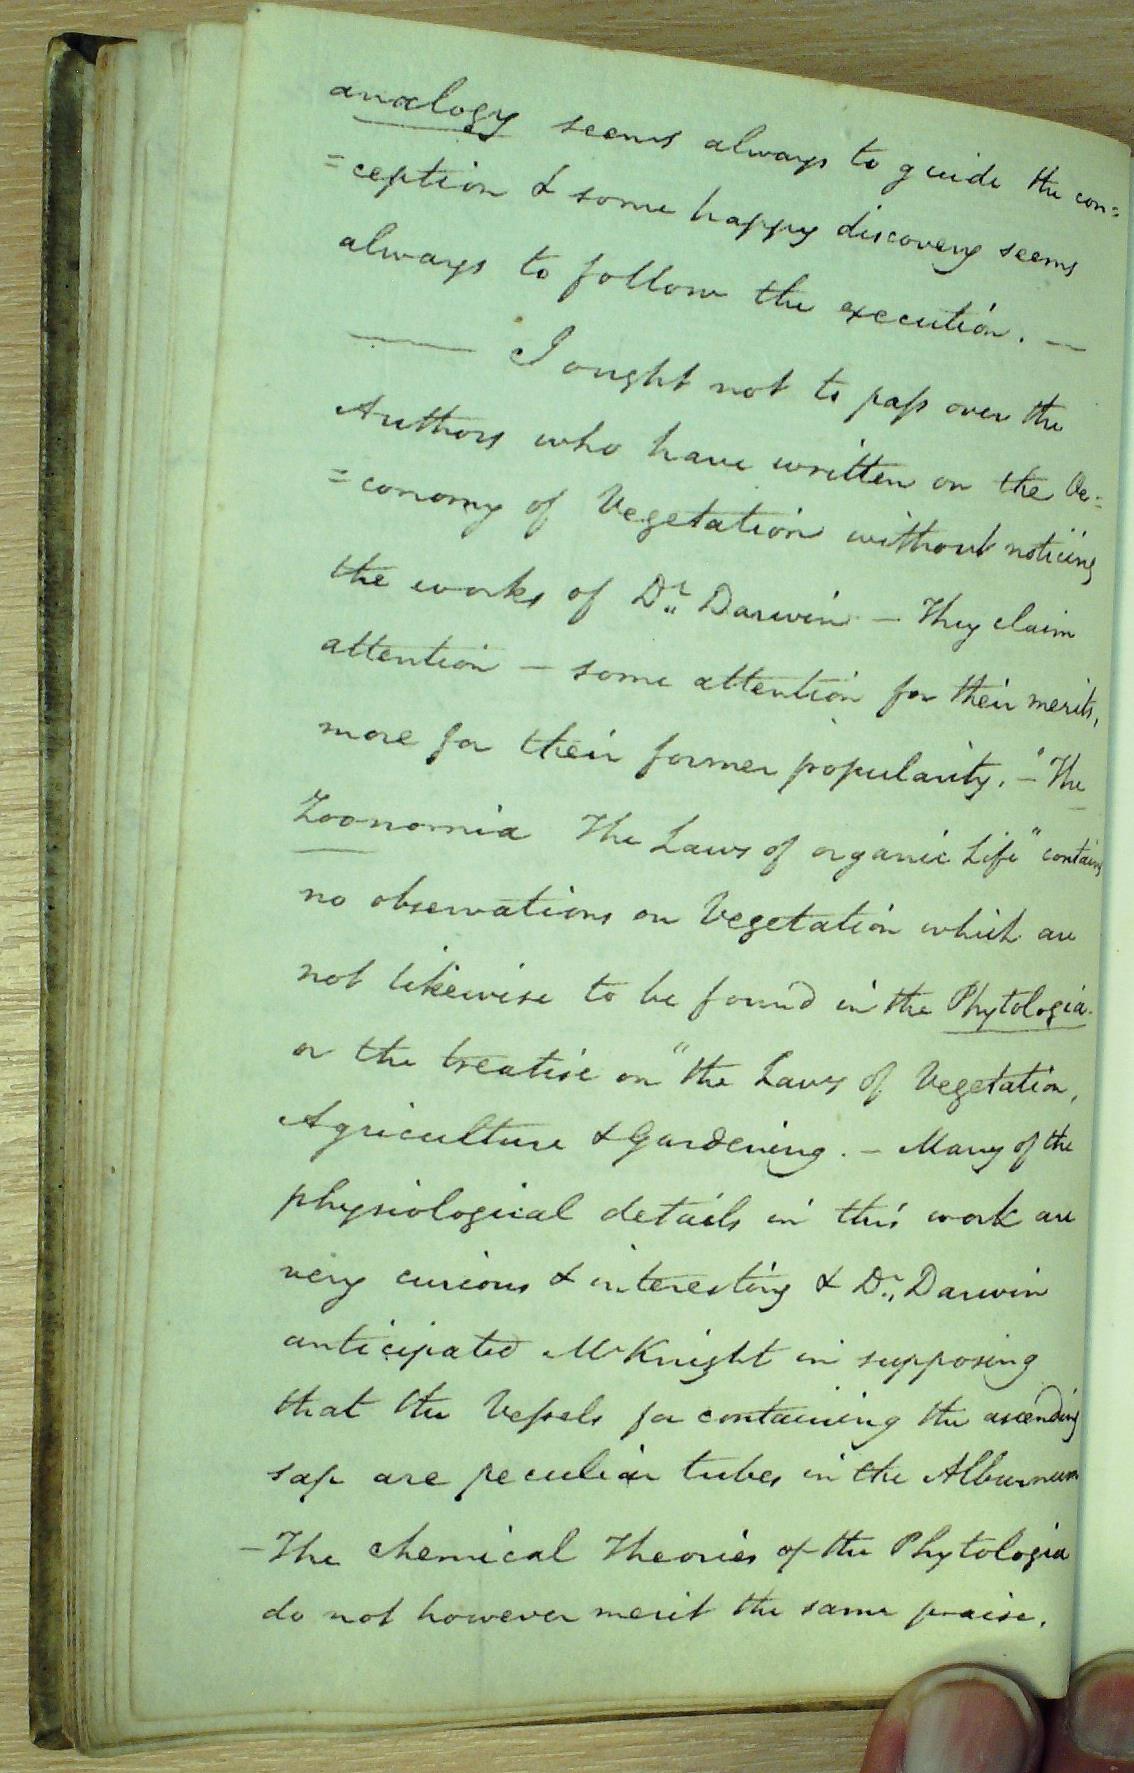 analogy seems always to guide the con=
=ception & some happy discovery seems
always to follow the execution. —
—— I ought not to paſs over the
Authors who have written on the Oe=
=conomy of Vegetation without noticing
the works of Dr. Darwin — They claim
attention — some attention for their merits,
more for their former popularity. — "The
Zoonomia The Laws of organic Life" contains
no observations on Vegetation which are
not likewise to be found in the Phytologia.
or the treatise on "the Laws of Vegetation,
Agriculture & Gardening. — Many of the
physiological details in this work are
very curious & interesting & Dr. Darwin
anticipated Mr Knight in supposing
that the Veſsels for containing the ascending
sap are peculiar tubes in the Alburnum
— The chemical Theories of the Phytologia
do not however merit the same praise.